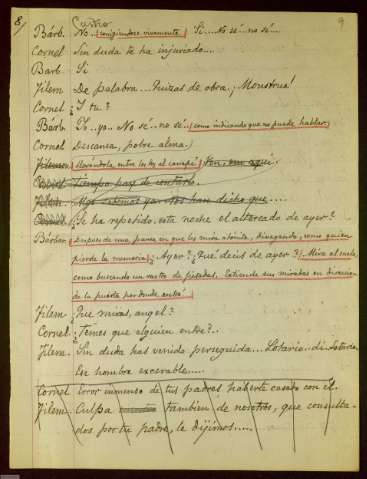 8,
9
Bárb. No... (corrigiéndose vivamente) Sí... No sé.. no sé...
Cornel Sin duda te ha injuriado....
Barb. Sí
Filem De palabra.... Quizas de obra. ¡Monstruo!
Cornel ¿Y tu?
Bárb. Yo.. yo... No sé.. no sé.. (como indicando que no puede hablar)
Cornel Descansa, pobre alma.)
Filemon (llevándola entre los dos al canapé) Ven.. ven aquí.
Cornel Tiempo hay de contarlo.
Filem. Algo sabemos ya. Nos han dicho que.....
Cornel ¿Se ha repetido esta noche el altercado de ayer?
Bárbar (Despues de una pausa en que les mira atónita, divagando, como quien
pierde la memoria) ¿Ayer? ¿Qué decis de ayer? (Mira al suelo,
como buscando un rastro de pisadas. Extiende sus miradas en direccion
de la puerta por donde entró)
Filem ¿Que miras, angel?
Cornel ¿Temes que alguien entre?..
Filem. Sin duda has venido perseguida.... Lotario... di. Lotario
Ese hombre execrable.....
Cornel Error inmenso de tus padres haberte casado con él.
Filem Culpa tambien de nosotros, que consulta-
dos por tu padre, le dijimos.....